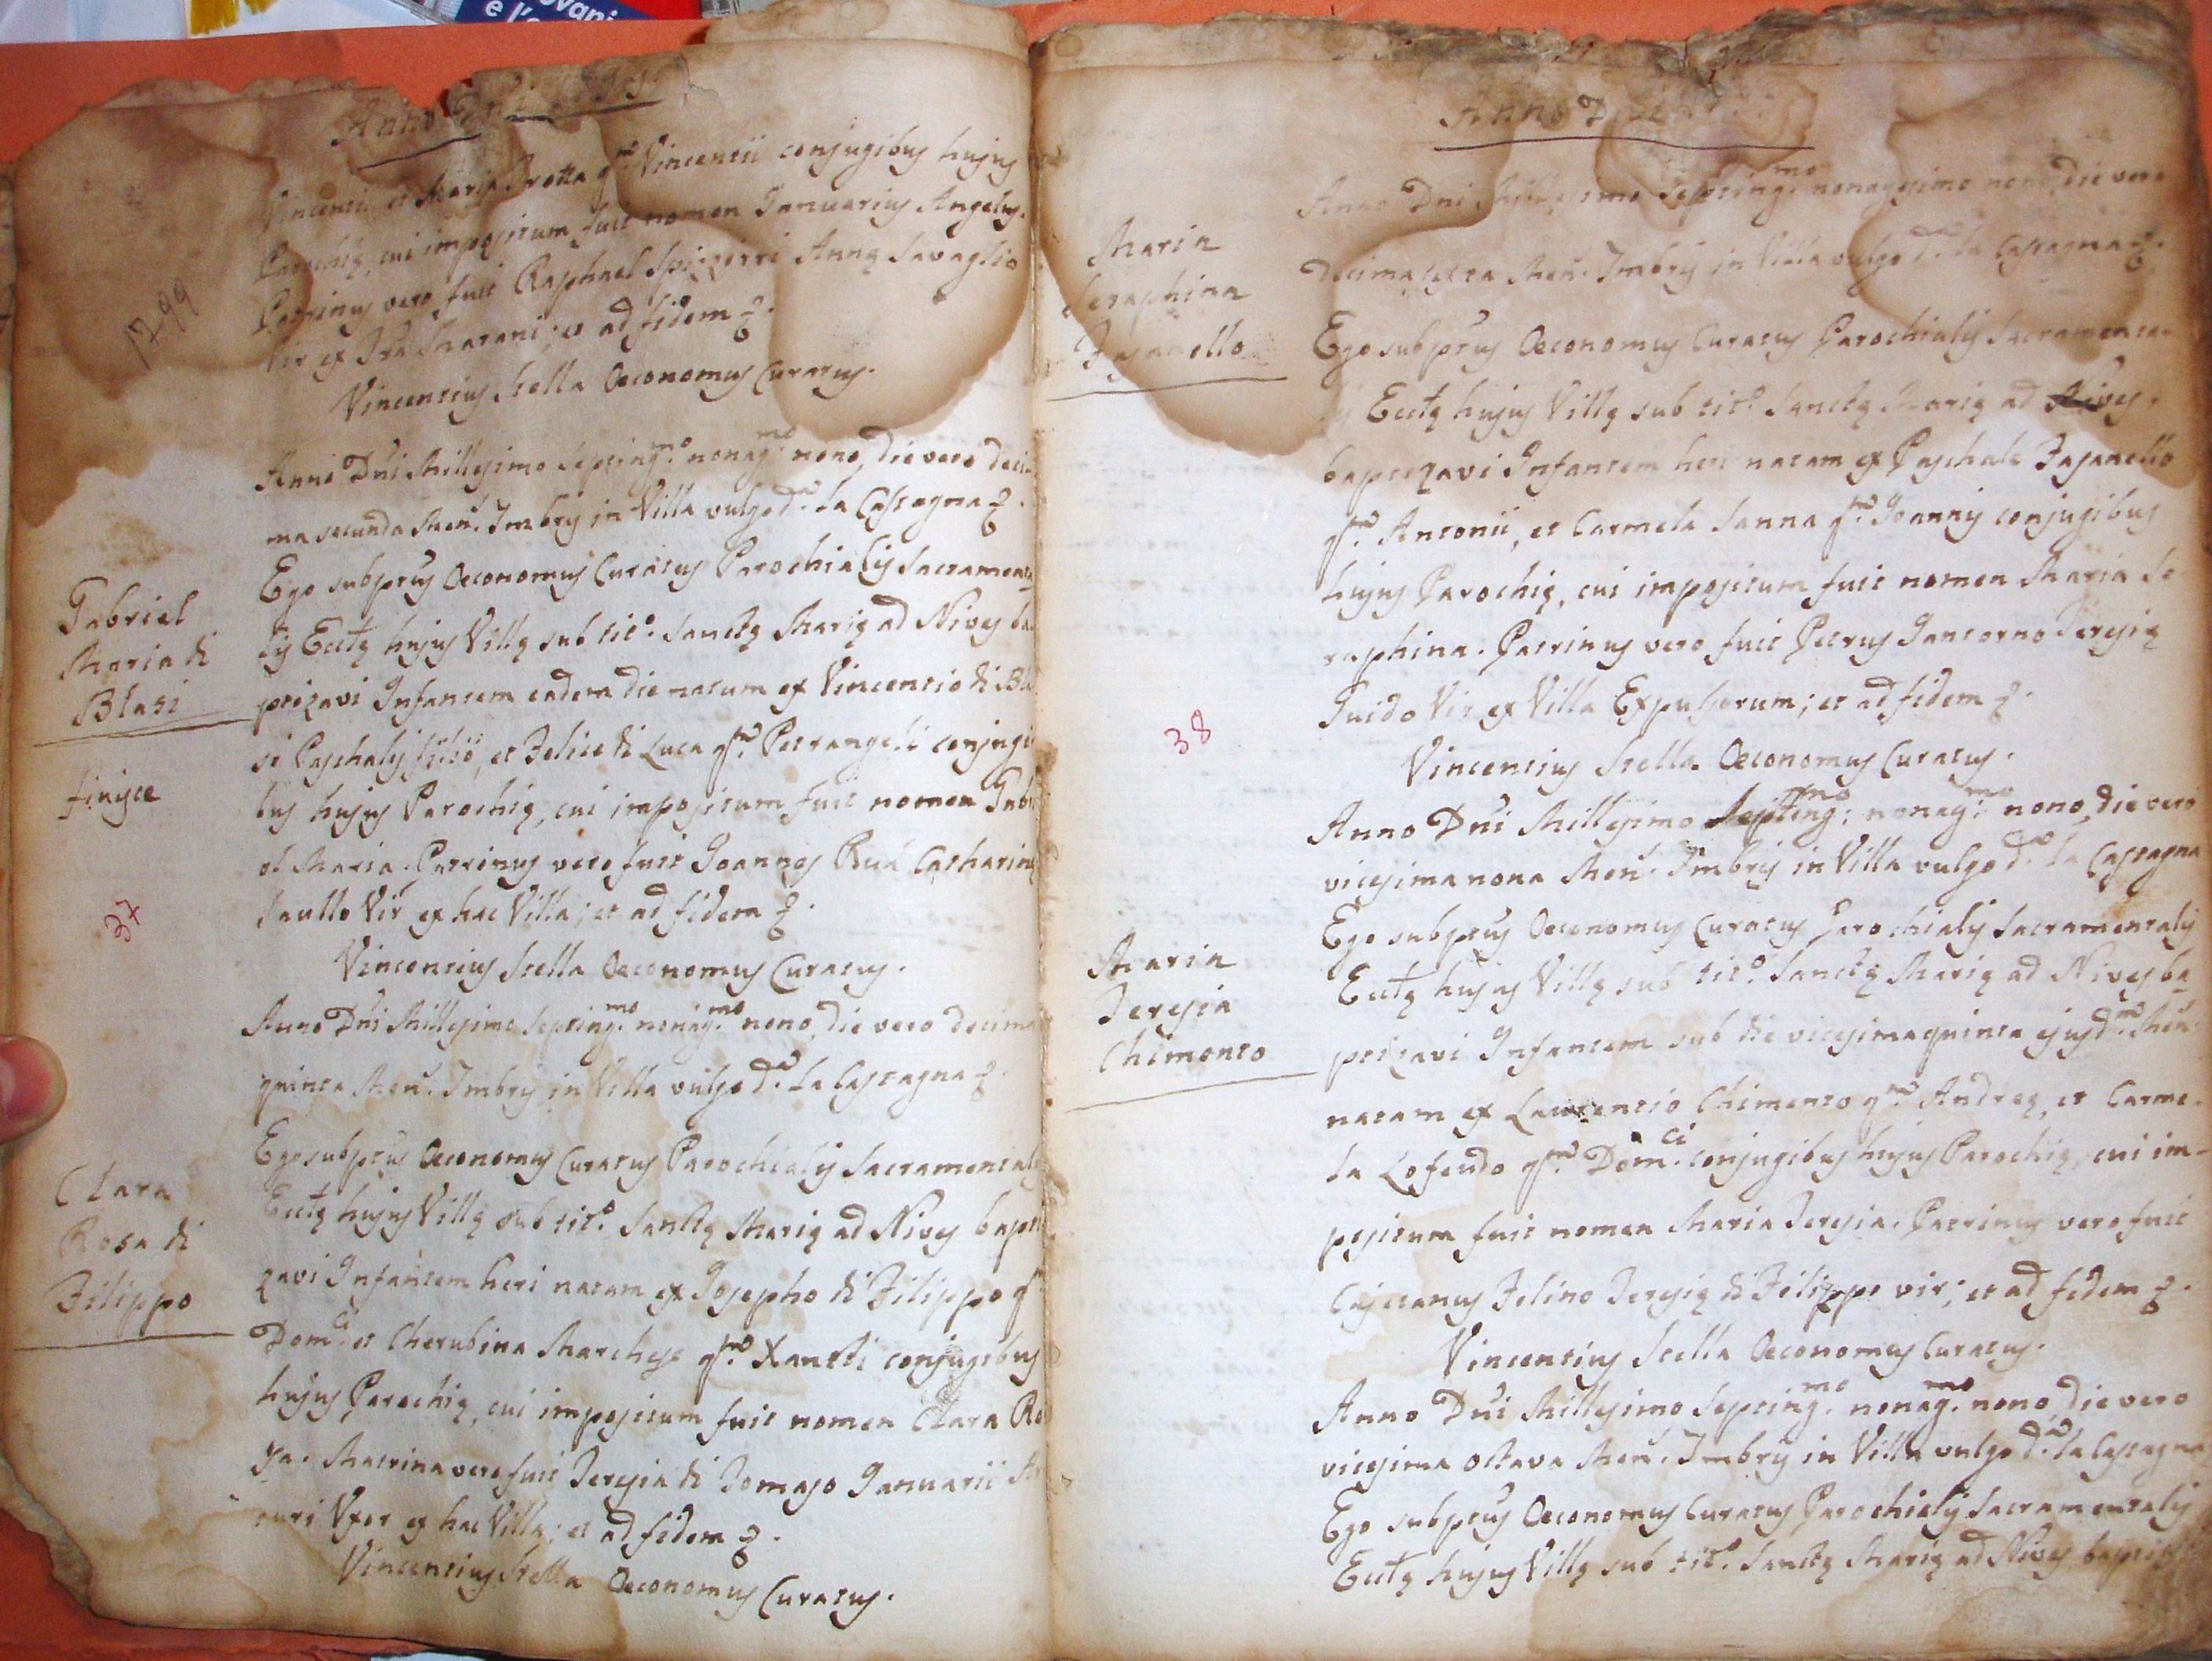 ovani
e l'
Anno Dni
1799
Vincentii et Maria Trotta qm. Vincentii conjugibus hujus
Parochię, cui impositum fuit nomen Januarius Angelus.
Patrinus vero fuit Raphael Spizzirri Annę Savaglio
Vir ex Marani; et ad fidem &.
Vincentius Stella Oeconomus Curatus.
Gabriel
Maria di
Blasi
finisce
37
Anno Dni Millesimo Septingmo. nonagmo. nono, die vero deci
ma secunda Men. Imbris in Villa vulgo da. La Castagna &.
Ego subptus Oeconomus Curatus Parochialis Sacramenta
lis Ecctę hujus Villę sub tito. Sanctę Marię ad Nives ba
ptizavi Infantem eadem die natum ex Vincentio di Bla
si Paschalis filio, et Felice di Luca qm. Petrangeli conjugi
bus hujus Parochię, cui impositum fuit nomen Gabri
el Maria. Patrinus vero fuit Joannes Ruà Catharinę
Saullo Vir ex hac Villa; et ad fidem &.
Vincentius Stella Oeconomus Curatus.
Clara
Rosa di
Filippo
Anno Dni Millesimo Septingmo. nonagmo. nono, die vero decima
quinta Men. Imbris in Villa vulgo da. La Castagna &.
Ego subptus Oeconomus Curatus Parochialis Sacramentalis
Ecctę hujus Villę sub tito. Sanctę Marię ad Nives bapti
zavi Infantem heri natam ex Josepho di Filippo qm
Domci. et Cherubina Marchese qm. Xanti conjugibus
hujus Parochię, cui impositum fuit nomen Clara Ro
sa. Matrina vero fuit Teresia di Tomaso Januarii
turi Uxor ex hac Villa; et ad fidem &.
Vincentius Stella Oeconomus Curatus.
Anno D
Maria
Seraphina
Fasanello
38
Anno Dni Millesimo Septingmo. nonagesimo nono, die vero
decima sexta Men. Imbris in Villa vulgo da. La Castagna &.
Ego subptus Oeconomus Curatus Parochialis Sacramenta-
lis Ecctę hujus Villę sub tito. Sanctę Marię ad Nives.
baptizavi Infantem heri natam ex Paschale Fasanello
qm. Antonii, et Carmela Sanna qm. Joannis conjugibus
hujus Parochię, cui impositum fuit nomen Maria Se
raphina. Patrinus vero fuit Petrus Jantorno Teresię
Guido Vir ex Villa Expulsorum; et ad fidem &.
Vincentius Stella Oeconomus Curatus.
Maria
Teresia
Chimento
Anno Dni Millesimo Septingmo. nonagmo. nono, die vero
vicesima nona Men. Imbris in Villa vulgo da. La Castagna
Ego subptus Oeconomus Curatus Parochialis Sacramentalis
Ecctę hujus Villę sub tito. Sanctę Marię ad Nives ba
ptizavi Infantem sub die vicesimaquinta ejusdm. Men.
natam ex Laurentio Chimento qm. Andreę, et Carme-
la Lofeudo qm. Domci. conjugibus hujus Parochię, cui im-
positum fuit nomen Maria Teresia. Patrinus vero fuit
Cajetanus Felino Teresię di Filippo vir; et ad fidem &.
Vincentius Stella Oeconomus Curatus.
Anno Dni Millesimo Septingmo. nonagmo. nono, die vero
vicesima octava Men. Imbris in Villa vulgo da. La Castagna
Ego subptus Oeconomus Curatus Parochialis Sacramentalis
Ecctę hujus Villę sub tito. Sanctę Marię ad Nives bapti